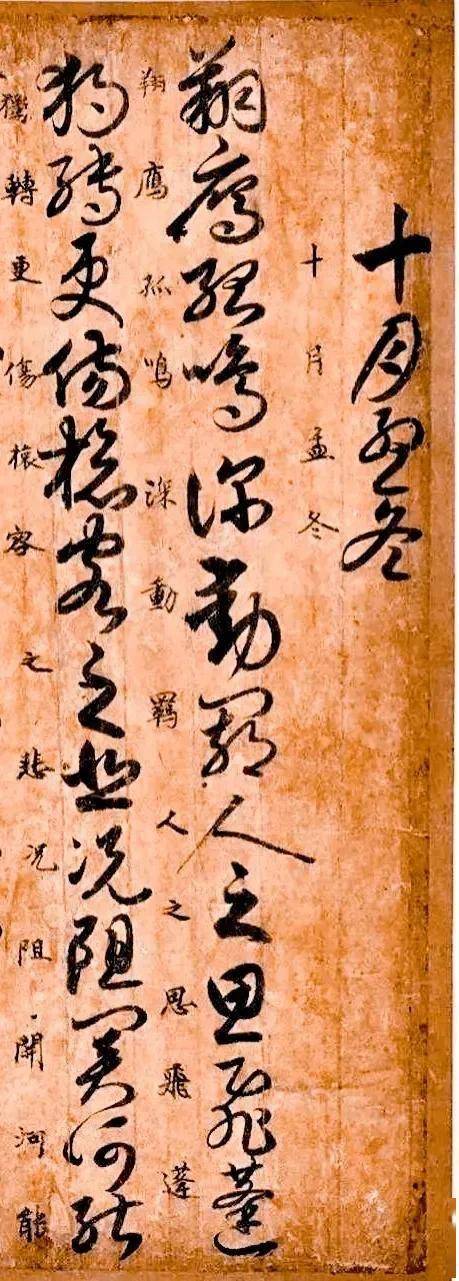 十月孟冬
十月孟冬
翔鷹孤鳴深動羈人之思飛蓬
翔鷹孤鳴深動羈人之思飛蓬
獨轉更傷懷客之悲況阻關河能
獨轉更傷懷容之悲况阻開河能